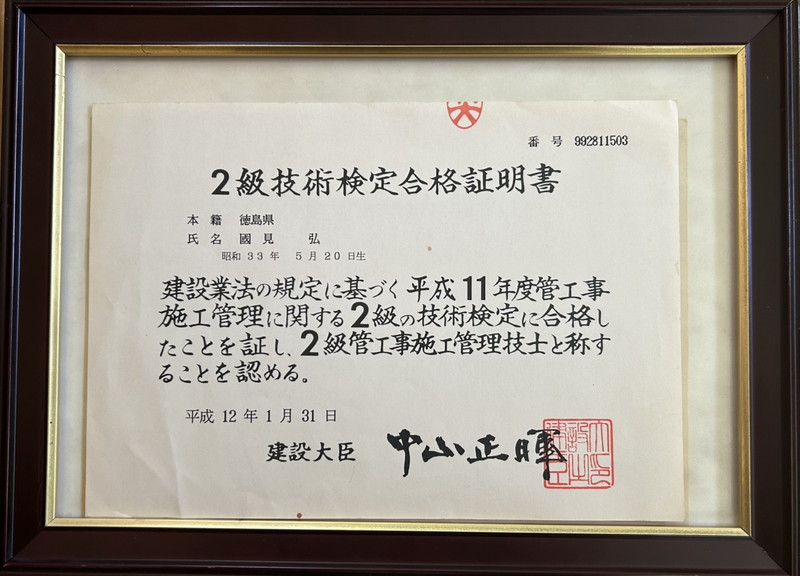 番号 992811503
2級技術検定合格証明書
本籍 徳島県
氏名 國見 弘
昭和33年 5月20日生
建設業法の規定に基づく平成11年度管工事
施工管理に関する2級の技術検定に合格し
たことを証し、2級管工事施工管理技士と称す
ることを認める。
平成12年1月31日
建設大臣 中山正暉
建設大臣之印